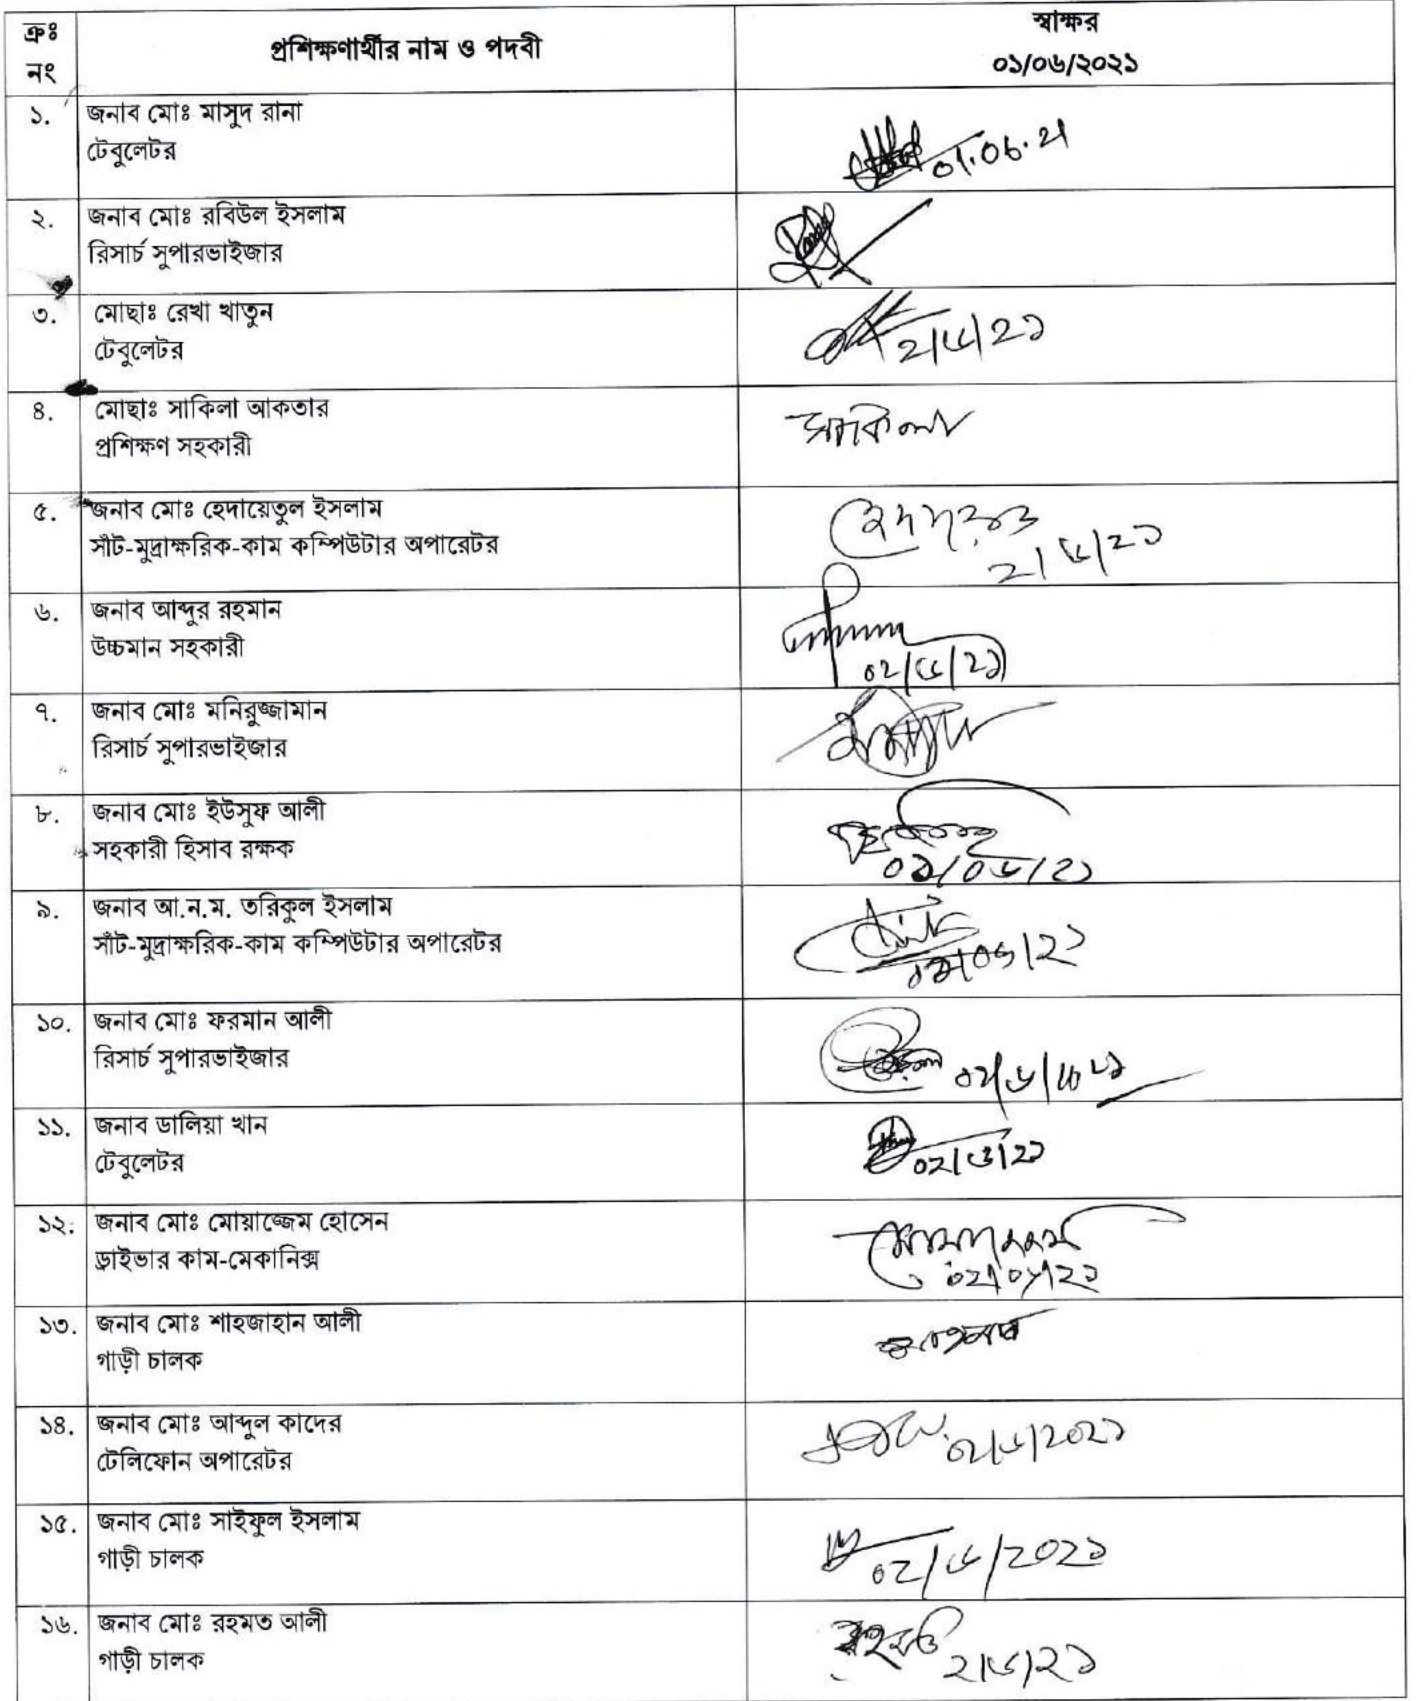 ক্রঃ নং
প্রশিক্ষণার্থীর নাম ও পদবী
স্বাক্ষর
০১/০৬/২০২১
১.
জনাব মোঃ মাসুদ রানা
টেবুলেটর
01.06.21
২.
জনাব মোঃ রবিউল ইসলাম
রিসার্চ সুপারভাইজার
৩.
মোছাঃ রেখা খাতুন
টেবুলেটর
২/৬/২১
৪.
মোছাঃ সাকিলা আকতার
প্রশিক্ষণ সহকারী
সাকিলা
৫.
জনাব মোঃ হেদায়েতুল ইসলাম
সাঁট-মুদ্রাক্ষরিক-কাম কম্পিউটার অপারেটর
২/৬/২১
৬.
জনাব আব্দুর রহমান
উচ্চমান সহকারী
০২/৬/২১
৭.
জনাব মোঃ মনিরুজ্জামান
রিসার্চ সুপারভাইজার
৮.
জনাব মোঃ ইউসুফ আলী
সহকারী হিসাব রক্ষক
৯.
জনাব আ.ন.ম. তরিকুল ইসলাম
সাঁট-মুদ্রাক্ষরিক-কাম কম্পিউটার অপারেটর
১০.
জনাব মোঃ ফরমান আলী
রিসার্চ সুপারভাইজার
১১.
জনাব ডালিয়া খান
টেবুলেটর
০২/৬/২১
১২.
জনাব মোঃ মোয়াজ্জেম হোসেন
ড্রাইভার কাম-মেকানিক্স
১৩.
জনাব মোঃ শাহজাহান আলী
গাড়ী চালক
১৪.
জনাব মোঃ আব্দুল কাদের
টেলিফোন অপারেটর
০২/৬/২০২১
১৫.
জনাব মোঃ সাইফুল ইসলাম
গাড়ী চালক
০২/৬/২০২১
১৬.
জনাব মোঃ রহমত আলী
গাড়ী চালক
রহমত
২/৬/২১